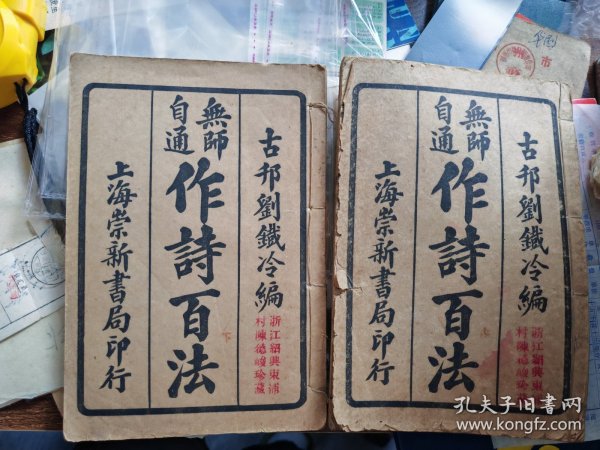 古邗劉鐵冷編
無師
自通
作詩百法
上海崇新書局印行
下
浙江紹興東浦
村陳德峻珍藏
古邗劉鐵冷編
無師
自通
作詩百法
上海崇新書局印行
上
浙江紹興東浦
村陳德峻珍藏
市
孔夫子旧书网
www.kongfz.com